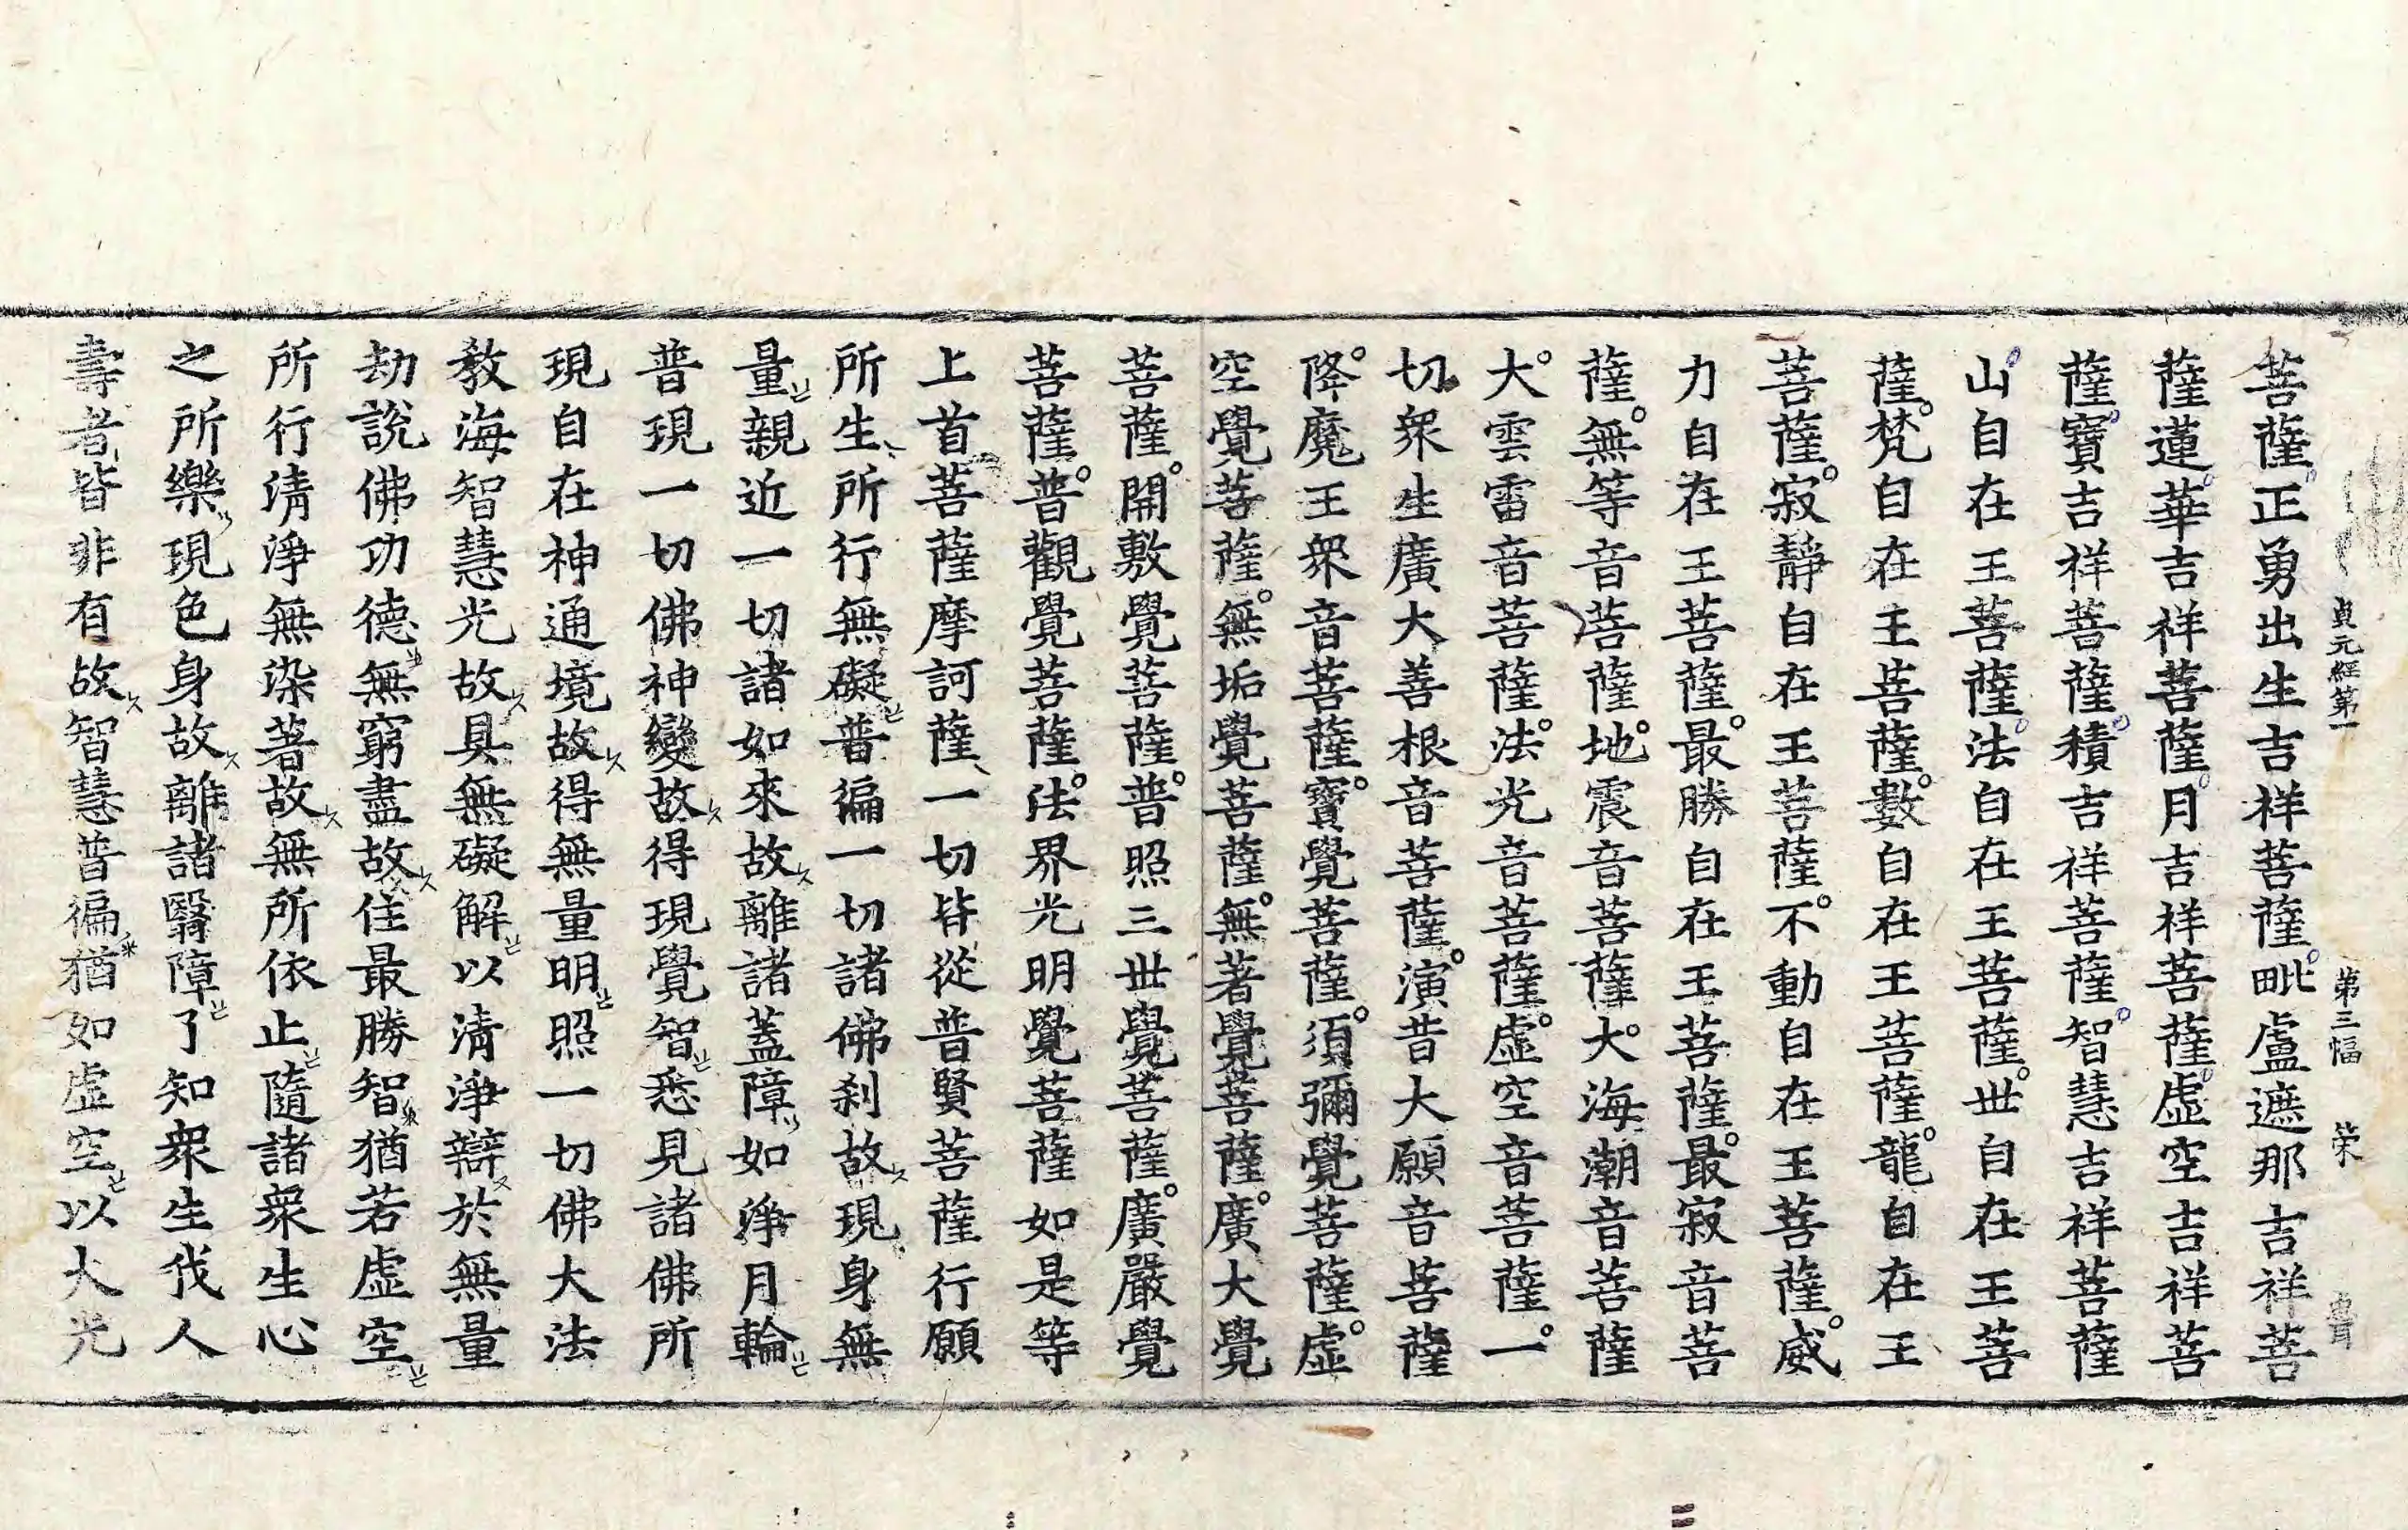 貞元經第一 第三幅 荣
菩薩正勇出生吉祥菩薩毗盧遮那吉祥菩
薩蓮華吉祥菩薩月吉祥菩薩虛空吉祥菩
薩寶吉祥菩薩積吉祥菩薩智慧吉祥菩薩
山自在王菩薩法自在王菩薩世自在王菩
薩梵自在王菩薩數自在王菩薩龍自在王
菩薩寂靜自在王菩薩不動自在王菩薩威
力自在王菩薩最勝自在王菩薩最寂音菩
薩無等音菩薩地震音菩薩大海潮音菩薩
大雲雷音菩薩法光音菩薩虛空音菩薩一
切衆生廣大善根音菩薩演昔大願音菩薩
降魔王衆音菩薩寶覺菩薩須彌覺菩薩虛
空覺菩薩無垢覺菩薩無著覺菩薩廣大覺
菩薩開敷覺菩薩普照三世覺菩薩廣嚴覺
菩薩普觀覺菩薩法界光明覺菩薩如是等
上首菩薩摩訶薩一切皆從普賢菩薩行願
所生所行無礙普徧一切諸佛刹故現身無
量親近一切諸如來故離諸蓋障如淨月輪
普現一切佛神變故得現覺智悉見諸佛所
現自在神通境故得無量明照一切佛大法
教海智慧光故具無礙解以清淨辯於無量
劫說佛功德無窮盡故住最勝智猶若虛空
所行清淨無染著故無所依止隨諸衆生心
之所樂現色身故離諸翳障了知衆生伐人
壽者皆非有故智慧普徧猶如虛空以大光